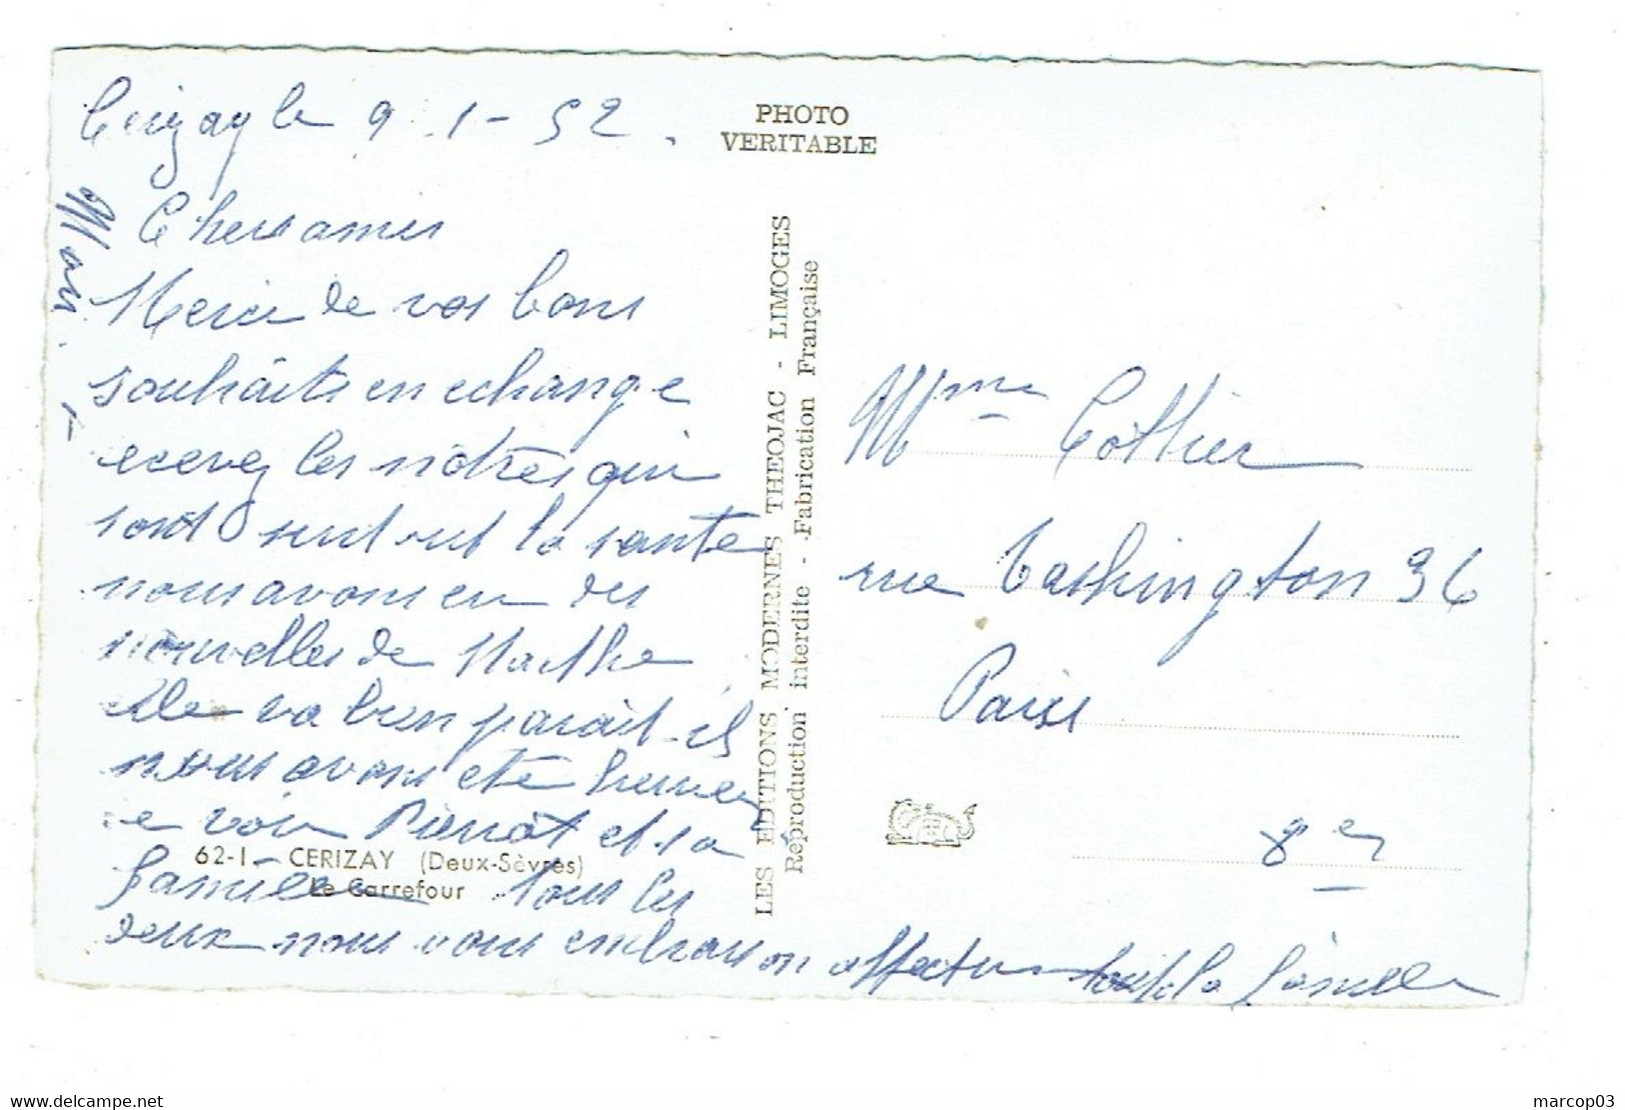 Cerizay le 9-1-52.
Chers amis
Merci de vos bons
souhaits en echange
recevez les nôtres qui
sont surtout la santé
nous avons eu des
nouvelles de Marthe
elle va bien parait-il
nous avons été heureux
de voir Pierrot et sa
famille tous les
deux nous vous embrasson affectu toute la famille
PHOTO
VERITABLE
LES EDITIONS MODERNES THEOJAC - LIMOGES
Reproduction interdite - Fabrication Française
Mme Cottier
rue Washington 36
Paris
8e
62-1 - CERIZAY (Deux-Sèvres)
Le Carrefour
marcop03